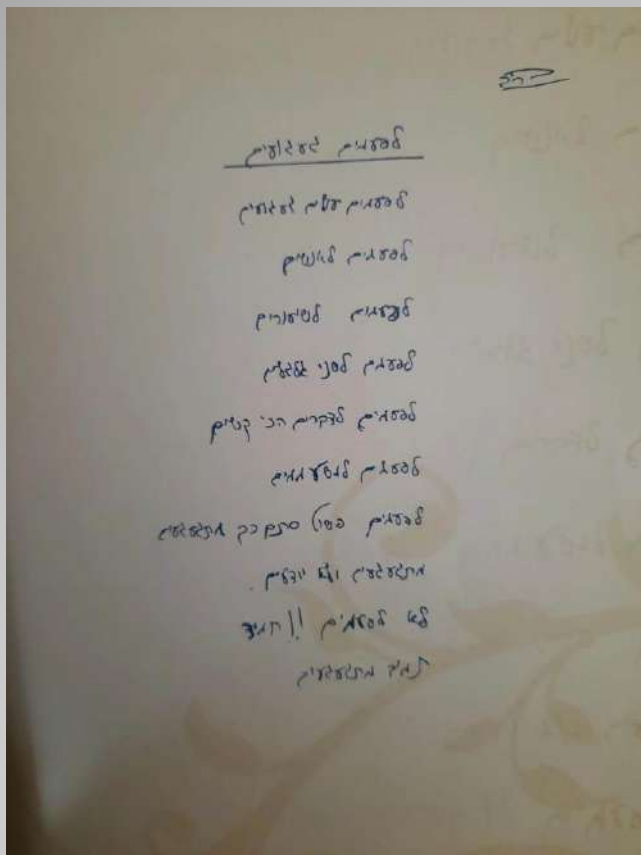 לפעמים געגועים
לפעמים עולים געגועים
לפעמים לאנשים
לפעמים לשיעורים
לפעמים לפני
לפעמים לדברים הכי קטנים
לפעמים
לפעמים פשוט סתם כך מתגעגעים
מתגעגעים ולא יודעים.
לא לפעמים!! תמיד
תמיד מתגעגעים